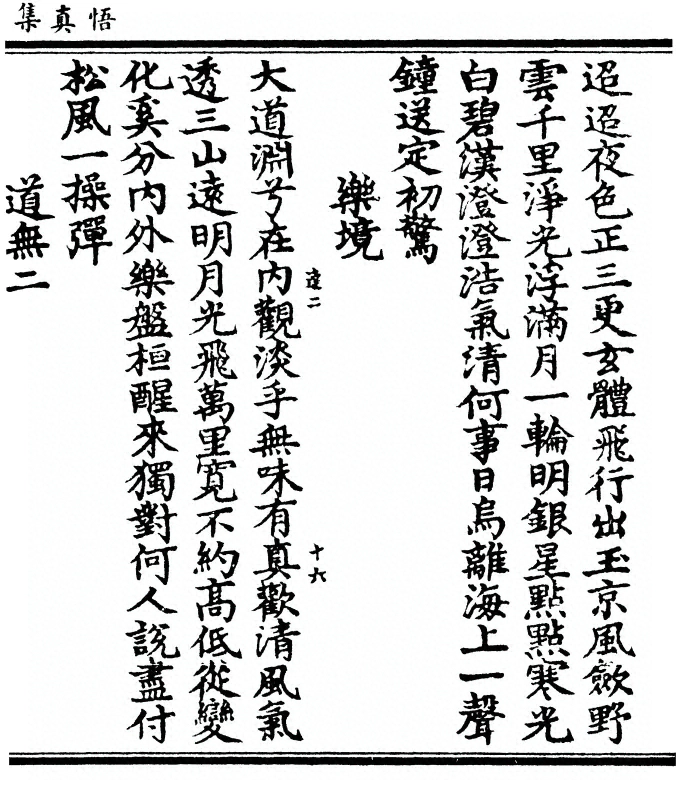 悟真集
迢迢夜色正三更玄體飛行出玉京風斂野
雲千里淨光浮滿月一輪明銀星點點寒光
白碧漢澄澄浩氣清何事日烏離海上一聲
鐘送定初驚
樂境
達二
十六
大道淵兮在內觀淡乎無味有真歡清風氣
透三山遠明月光飛萬里寬不約高低從變
化奚分內外樂盤桓醒來獨對何人說盡付
松風一操彈
道無二